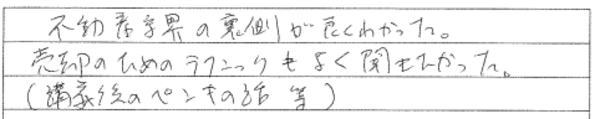 不動産業界の裏側がよくわかった。
売却のためのテクニックもよく聞けてよかった。
(講義後のペンキの話 等)